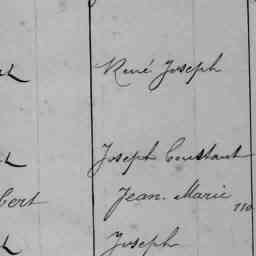 René Joseph
Joseph Constant
bert Jean. Marie 110
Joseph